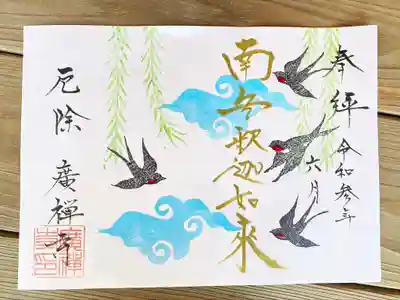 奉拝 令和参年
六月
南無釈迦如来
厄除 廣禅寺